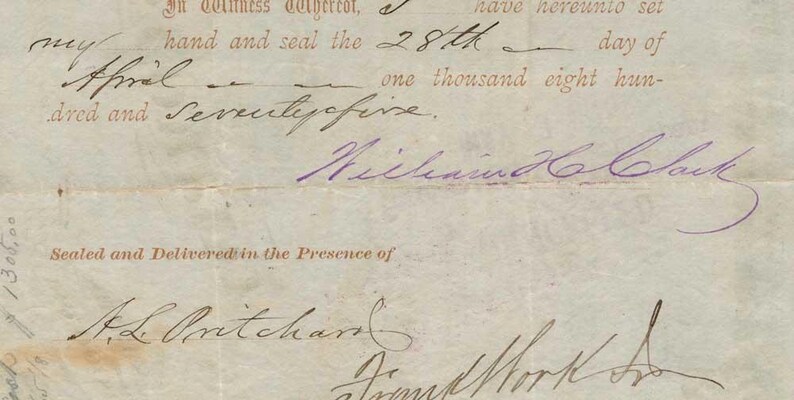 In Witness Whereof, I have hereunto set
my hand and seal the 28th day of
April one thousand eight hun-
dred and Seventy five.
William H. Clark
Sealed and Delivered in the Presence of
A. L. Pritchard
Frank Work Jr
1305.00